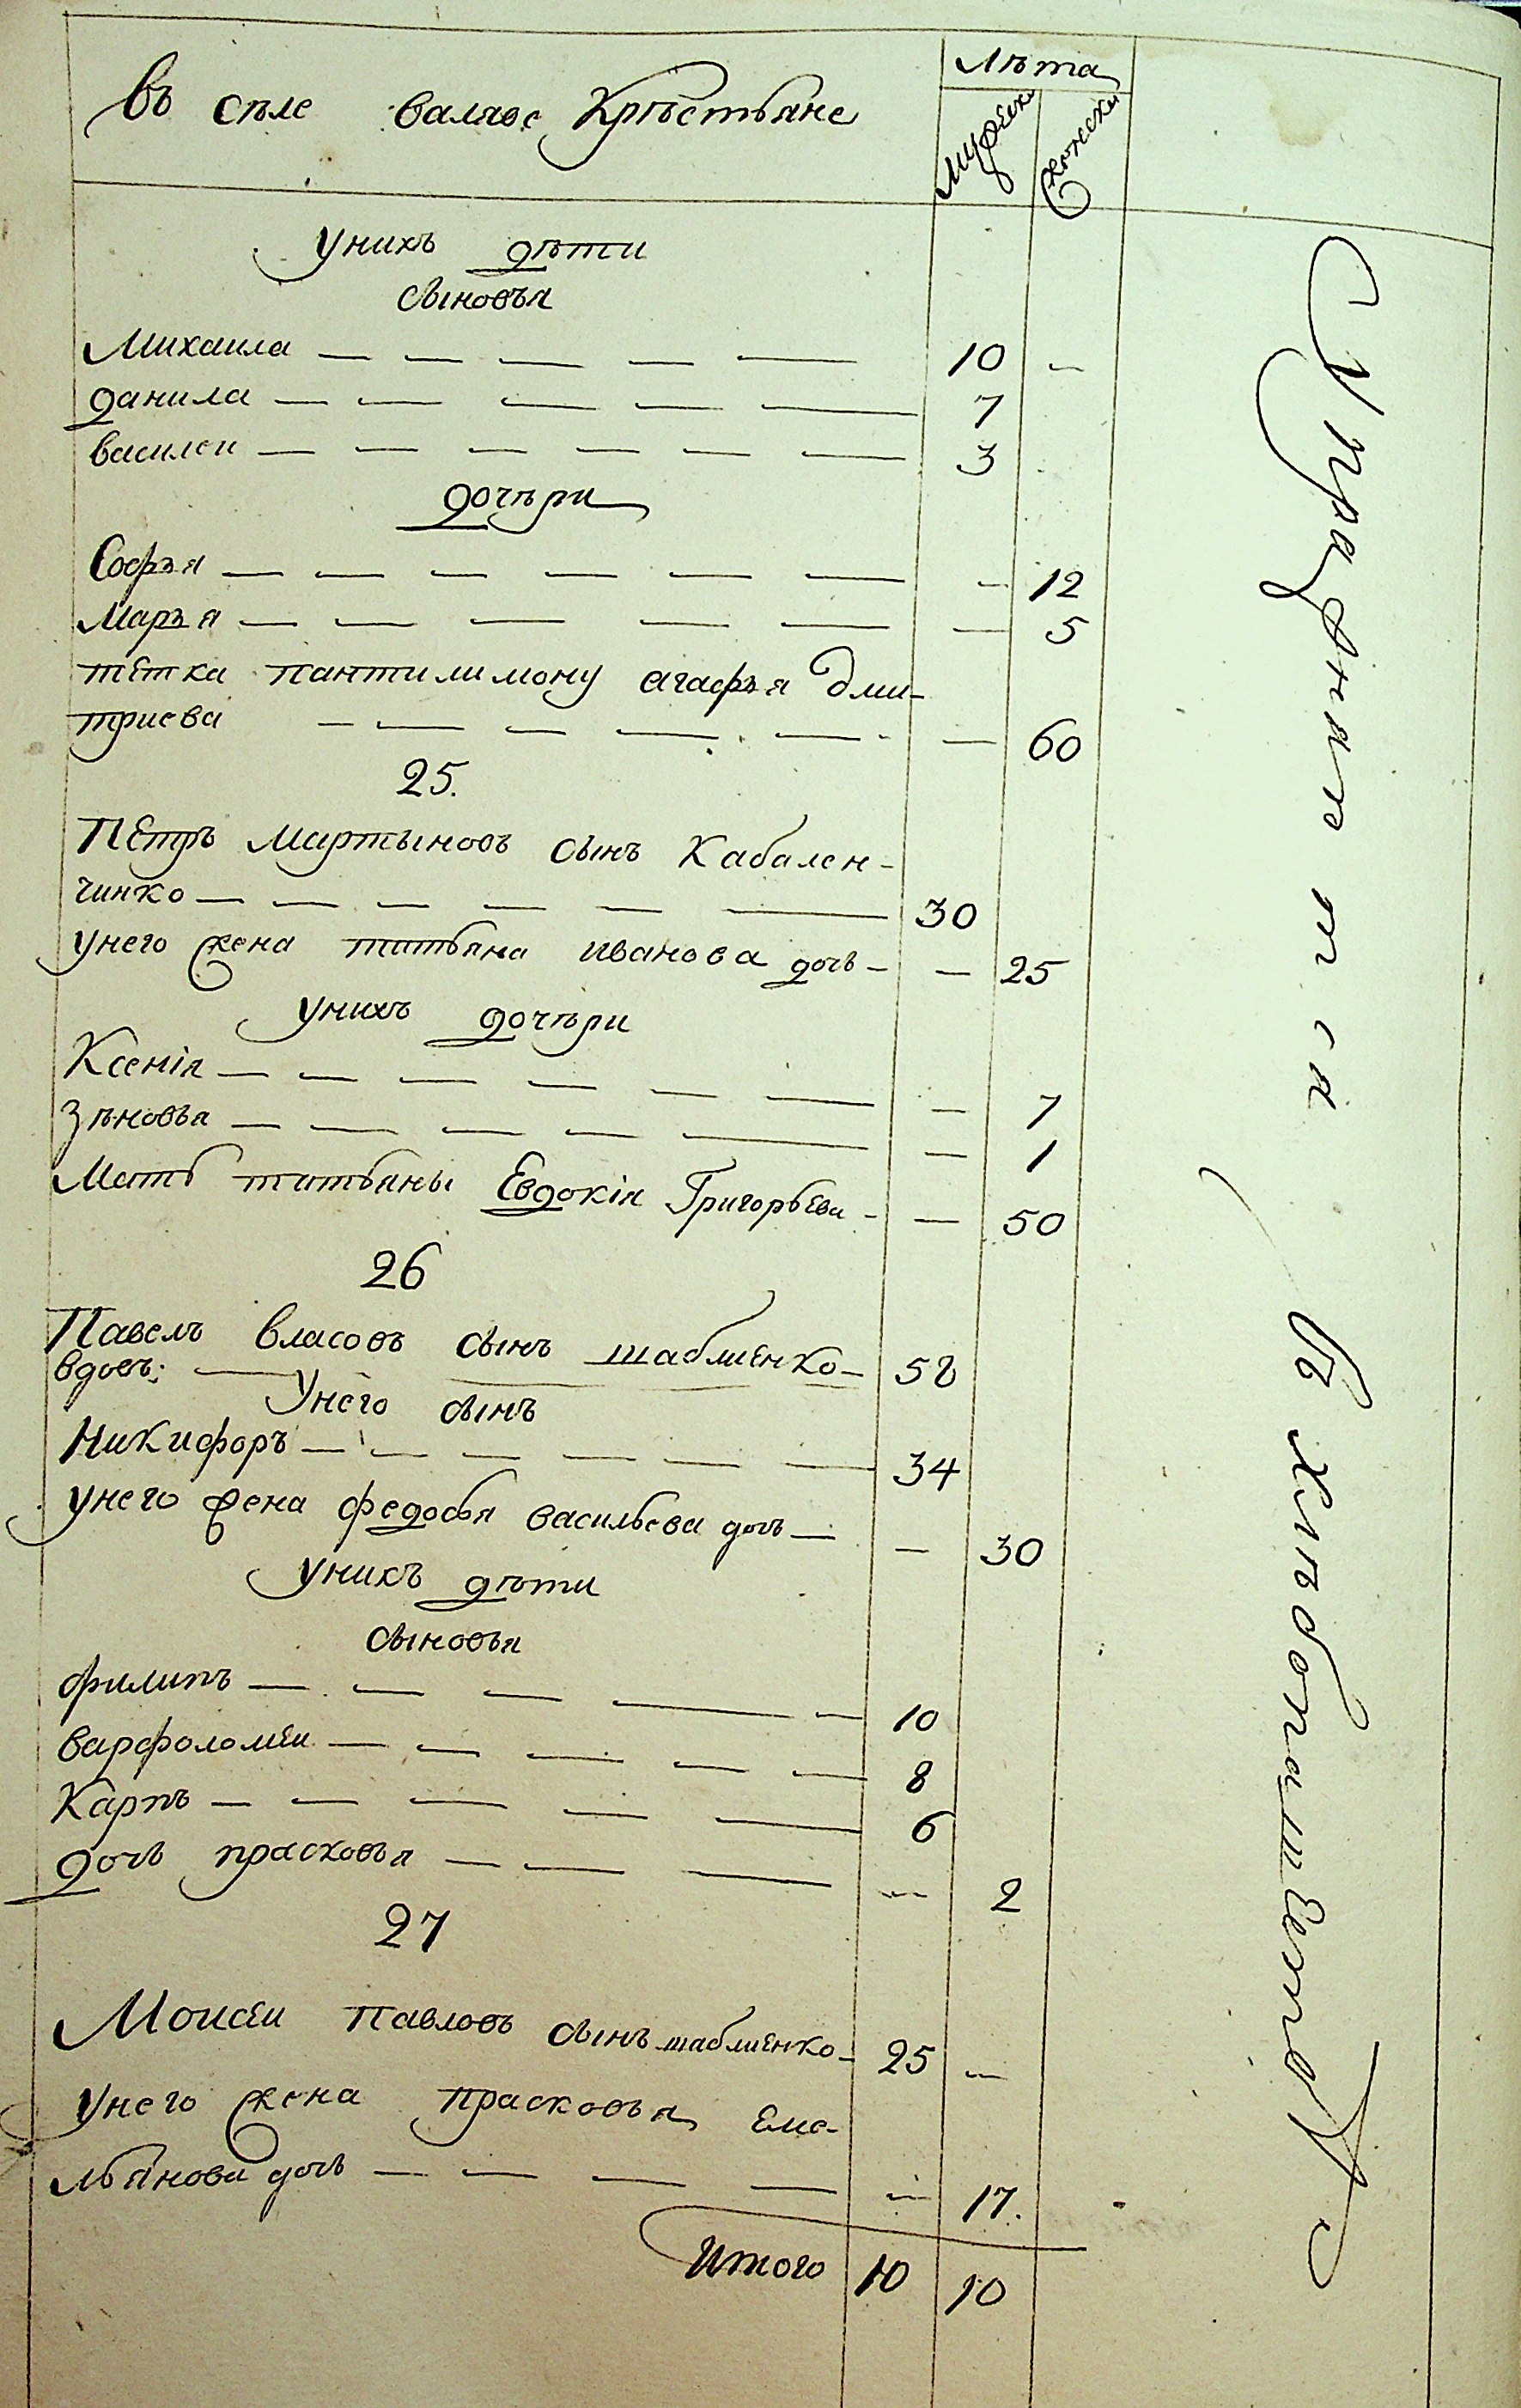 Въ сѣле валяве Крѣстьяне
Лѣта
Мужеска
Женска
Унихъ дѣти
сыновъя
Михаила — — — — — 10 —
данила — — — — — 7
василеи — — — — — — 3
дочѣри
Софъя — — — — — — — 12
Маръя — — — — — — — 5
тетка пантилимону агафъя Дми-
триева — — — — — — 60
25.
Петръ Мартыновъ сынъ Кабален-
чинко — — — — — — 30
унего жена татьяна иванова дочь — — 25
унихъ дочѣри
Ксенія — — — — — — — 7
Зѣновъя — — — — — — 1
Мать татьяны Евдокія Григорьева — — 50
26
Павелъ власовъ сынъ шаблиенко — 58
вдовъ:
Унего сынъ
Никифоръ — — — — — — 34
унего жена федосья васильева дочь — — 30
унихъ дѣти
сыновъя
филипъ — — — — — 10
варфоломеи — — — — — 8
Карпъ — — — — — 6
дочь прасковъя — — — — 2
27
Моисеи Павловъ сынъ шаблиенко — 25 —
унего жена прасковъя еме-
льянова дочь — — — — — 17.
Итого 10 10